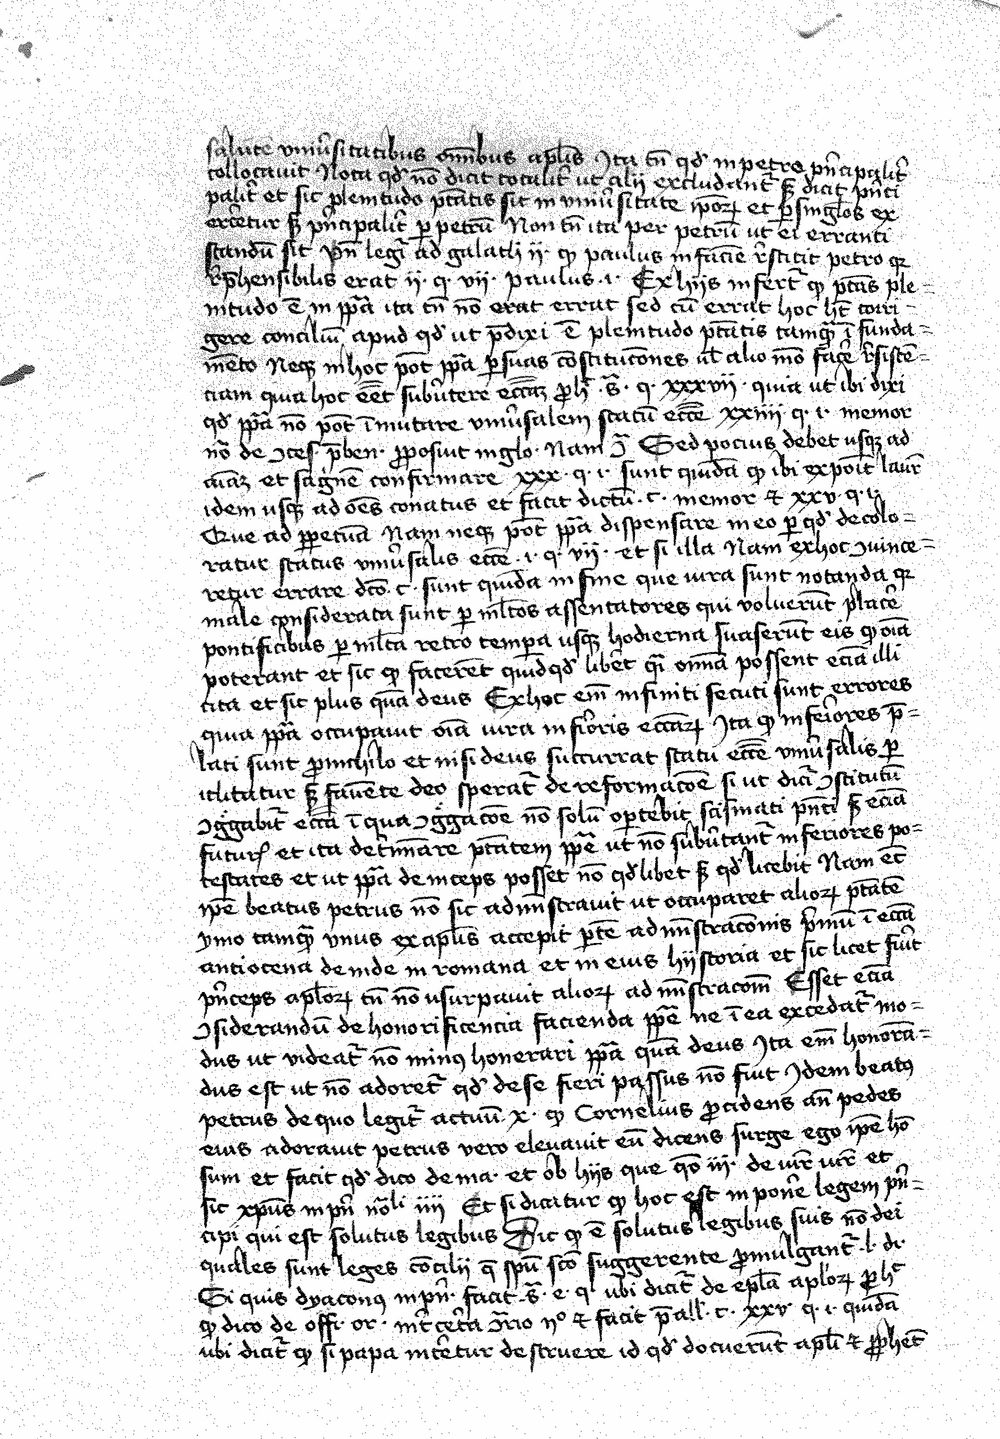 salute vniu̾sitatibus om̄ibus apl̄is Ita tn̄ qd̾ in petro pn̄cipalit̾
collocauit Nota qd̾ nō dicit totalit̾ ut alii excludant᷑ sꝫ dicit pn̄ci
palit̾ et sic plenitudo ptātis sit in vniu̾sitate ip̄oꝝ et ꝑ singl̄os ex
erc̾etur sꝫ pn̄cipalit̾ ꝑ petrū Non tn̄ ita per petrū ut ei erranti
standū sit Vn̄ legi᷑ ad galath ii· ꝙ paulus in faciē r̾stitit petro qꝛ
r̾p̄hensibilis erat ii· q· vii· paulus· i· Ex hiis infert᷑ ꝙ ptās ple-
nitudo ē in pp̄a ita tn̄ nō erat errat sed cū errat hoc hꝫ corri-
gere conciliū apud qd̾ ut p̄dixi ē plenitudo ptātis tamqᷓ ī funda-
mēto Neqꝫ in hoc pōt pp̄a ꝑ suas cōstitucōnes ul̾ alio mō fac̾e r̾sistē-
ciam quia hoc eēt subu̾tere ecc̄az ꝓh̾ ·s̄· q· xxxvii· quia ut ibi dixi
qd̾ pp̄a nō pōt īmutare vniu̾salem statū ecc̄e xxiiii q· i· memor
nō de ꝯces· p̄ben· ꝓposuit in glo· Nam Sed pocius debet usqꝫ ad
aīaz et sāgnem confirmare xxx· q· i· sunt quidā ꝙ ibi expōit laur̾
idem usqꝫ ad oēs conatus et facit dictū· c· memor ⁊ xxv· q· i·
Que ad ꝑpetuā Nam neqꝫ pōt pp̄a dispensare in eo ꝑ qd̾ decolo-
ratur status vniu̾salis ecc̄e ·i· q· vii· et si illa Nam ex hoc ꝯuince-
retur errare dc̄o· c· sunt quidā in fine que iura sunt notanda qꝛ
male considerata sunt ꝑ ml̄tos assentatores qui voluerūt plac̾e
pontificibus ꝑ ml̄ta retro tempa usqꝫ hodierna suaserūt eis ꝙ oīa
poterant et sic ꝙ facerēt quidqd̾ libet qᷓ om̄a possent eciā illi
cita et sic plus quā deus Ex hoc em̄ infiniti secuti sunt errores
quia pp̄a occupauit oīa iura inf̾ioris ecc̄iaꝝ Ita ꝙ inferiores p̄-
lati sunt ꝓ nichilo et nisi deus succurrat statu ecc̄e vniu̾salis ꝑ
iclitatur sꝫ fauēte deo sperat᷑ de reformacōe si ut dici᷑ ꝯstitutū
ꝯgᷓgabit᷑ ecc̄ia ī qua ꝯgᷓgacōe nō solū oꝑtebit scismati pn̄ti sꝫ eciā
futurꝭ et ita det̾minare ptātem pp̄e ut nō subu̾tant᷑ inferiores po-
testates et ut pp̄a deinceps posset nō qd̾ libet sꝫ qd̾ licebit Nam et
ip̄e beatus petrus nō sic adm̄istrauit ut occuparet alioꝝ ptātē
ymo tamqᷓ vnus ex apl̄is accepit ꝑtē adm̄istracōnis p̾mū ī ecc̄a
antiocena deinde in romana et in eius hystoria et sic licet fu̾it
pn̄ceps apl̄oꝝ tn̄ nō usurpauit alioꝝ adm̄istracom̄ Esset eciā
ꝯsiderandū de honorificencia facienda pp̄e ne ī ea excedat᷑ mo-
dus ut videat᷑ nō minꝰ honerari pp̄a quā deus Ita em̄ honorā-
dus est ut nō adoret᷑ qd̾ de se fieri passus nō fuit Idem beatꝰ
petrus de quo legit᷑ actuū· x· ꝙ Cornelius ꝓcidens an̄ pedes
eius adorauit petrus vero eleuauit eū dicens surge ego ip̄e hō
sum et facit qd̾ dico de ma· et ob hiis que qō iii· de vir̾ ur̾ et
sic xp̄us in pn̾ n̄oli iiii Et si dicitur ꝙ hoc est inpon̾e legem pn̾-
cipi qui est solutus legibus Dic ꝙ ē solutus legibus suis nō dei
quales sunt leges cōcilii q̄ spū scō suggerente ꝓmulgant᷑ ·l· di·
Si quis dyaconꝰ in pn̾· facit ·s̄· e· q· ubi dicit᷑ de epl̄a apl̾oꝝ ꝓhᶜ
ꝙ dico de offi· or· int̾ cet̾a ꝯrio nº ⁊ facit p̄all· c· xxv· q· i· quidā
ubi dicit᷑ ꝙ si papa nitetur destruere id qd̾ docuerūt apl̄i ⁊ ꝓphēt